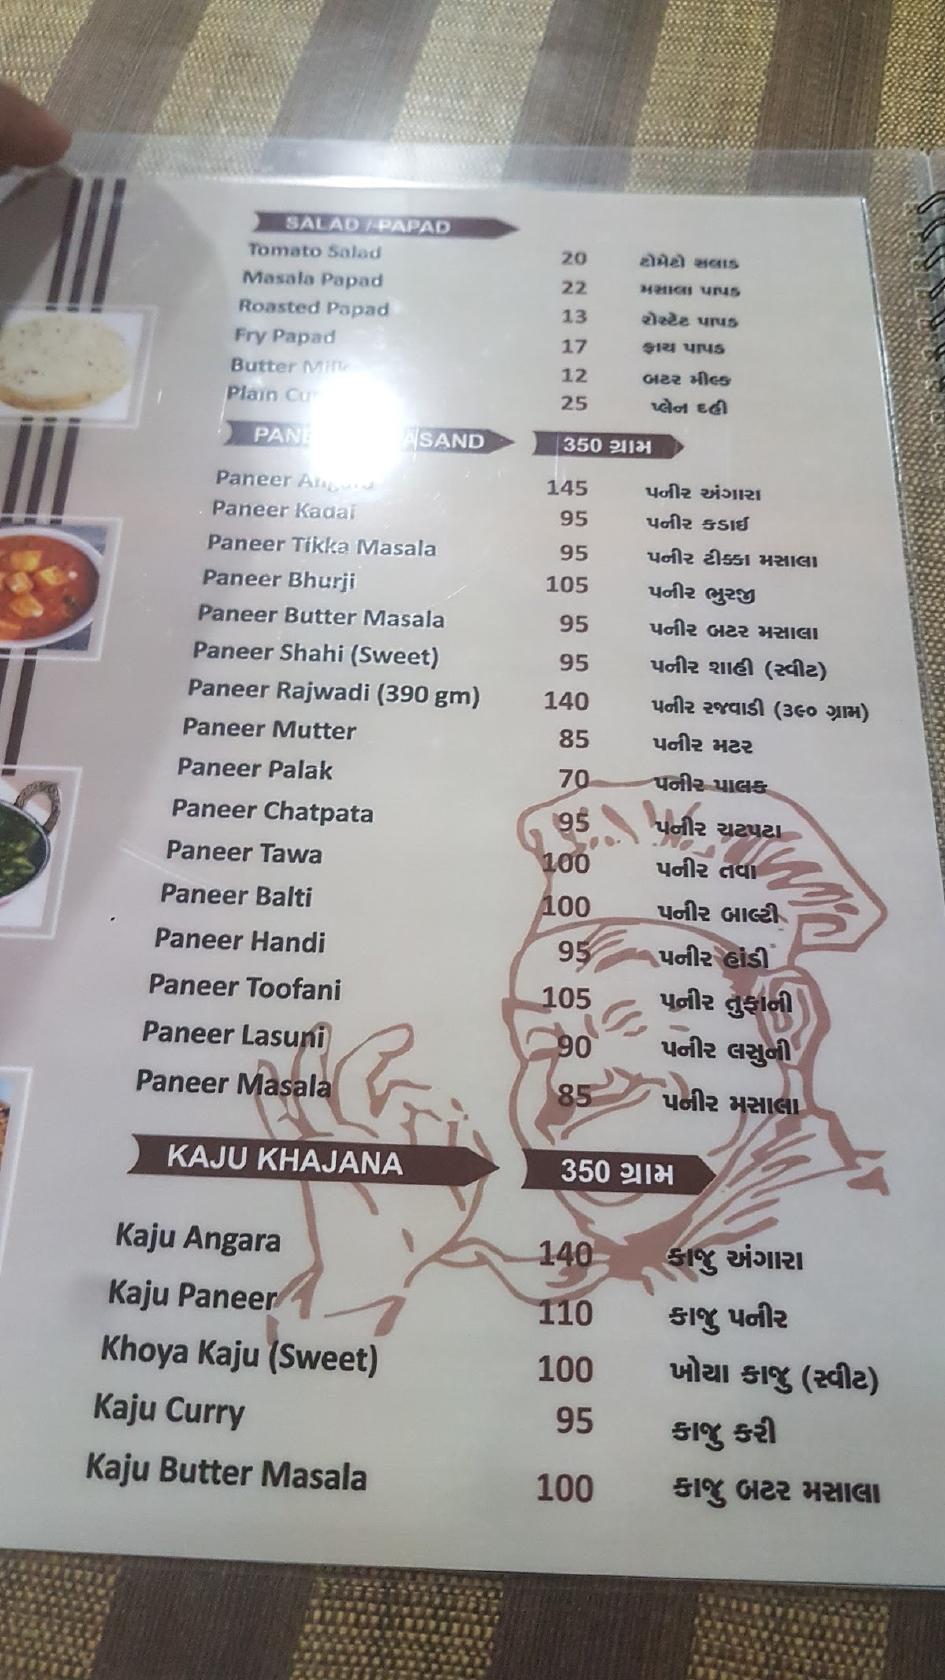 SALAD / PAPAD
Tomato Salad 20 ટોમેટો સલાડ
Masala Papad 22 મસાલા પાપડ
Roasted Papad 13 રોસ્ટેટ પાપડ
Fry Papad 17 ફ્રાય પાપડ
Butter Milk 12 બટર મીલ્ક
Plain 25 પ્લેન દહી
350 ગ્રામ
Paneer Angara 145 પનીર અંગારા
Paneer Kadai 95 પનીર કડાઈ
Paneer Tikka Masala 95 પનીર ટીક્કા મસાલા
Paneer Bhurji 105 પનીર ભુરજી
Paneer Butter Masala 95 પનીર બટર મસાલા
Paneer Shahi (Sweet) 95 પનીર શાહી (સ્વીટ)
Paneer Rajwadi (390 gm) 140 પનીર રજવાડી (૩૯૦ ગ્રામ)
Paneer Mutter 85 પનીર મટર
Paneer Palak 70 પનીર પાલક
Paneer Chatpata 95 પનીર ચટપટા
Paneer Tawa 100 પનીર તવા
Paneer Balti 100 પનીર બાલ્ટી
Paneer Handi 95 પનીર હાંડી
Paneer Toofani 105 પનીર તુફાની
Paneer Lasuni 90 પનીર લસુની
Paneer Masala 85 પનીર મસાલા
KAJU KHAJANA 350 ગ્રામ
Kaju Angara 140 કાજુ અંગારા
Kaju Paneer 110 કાજુ પનીર
Khoya Kaju (Sweet) 100 ખોયા કાજુ (સ્વીટ)
Kaju Curry 95 કાજુ કરી
Kaju Butter Masala 100 કાજુ બટર મસાલા